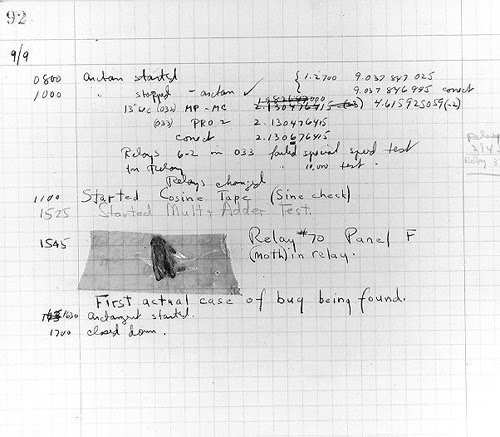 92
9/9
0800 Antan started
1000 " stopped - antan ✓ { 1.2700 9.037 847 025
9.037 846 995 correct
13"uc (032) MP - MC 2.130476415 (-3) 4.615925059(-2)
(033) PRO 2 2.130476415
correct 2.130676415
Relays 6-2 in 033 failed special speed test
In Relay " 10,000 test.
Relays changed
1100 Started Cosine Tape (Sine check)
1525 Started Mult+Adder Test.
1545 Relay #70 Panel F
(Moth) in relay.
First actual case of bug being found.
1630 antangent started.
1700 closed down.